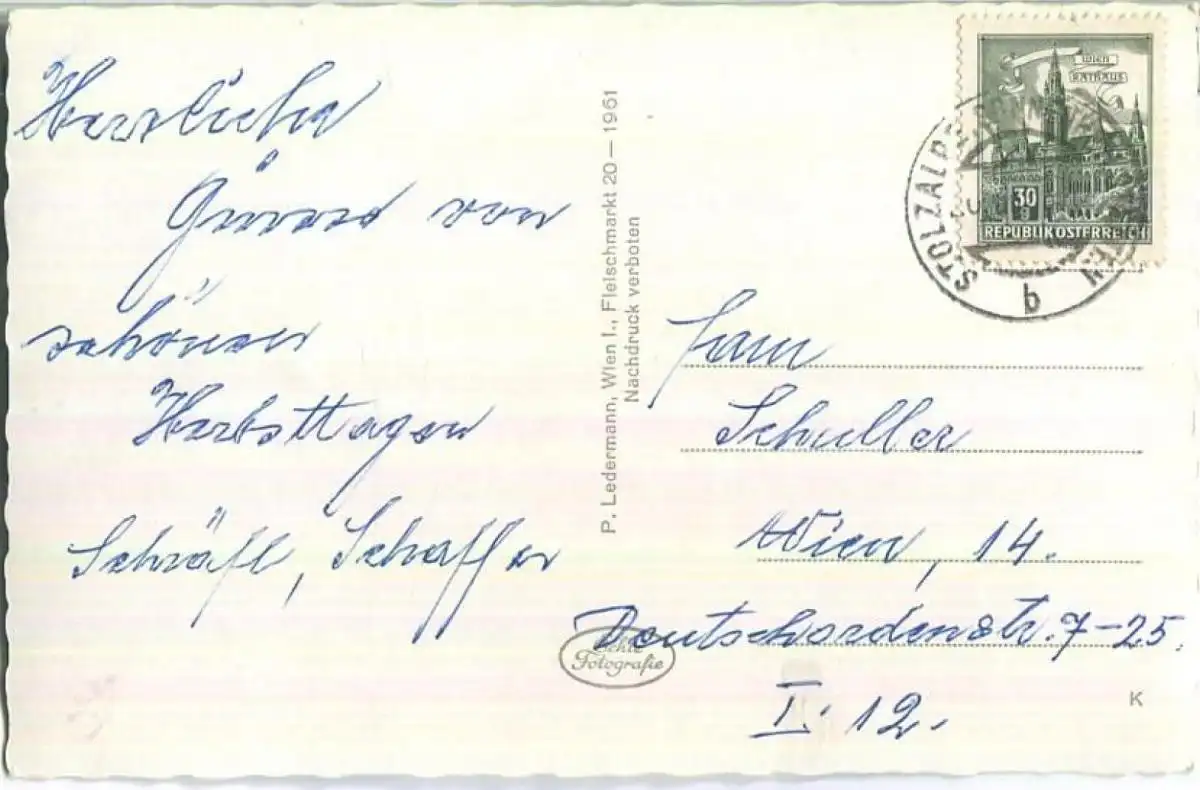 Herzliche
Grüsse von
schönen
Herbsttagen
Schräfl, Schaffer
P. Ledermann, Wien I., Fleischmarkt 20 — 1961
Nachdruck verboten
Echte
Fotografie
WIEN
RATHAUS
30
g
REPUBLIK ÖSTERREICH
STOLZALPE
b
Fam
Schuller
Wien, 14.
Deutschordenstr. 7-25.
I. 12.
K